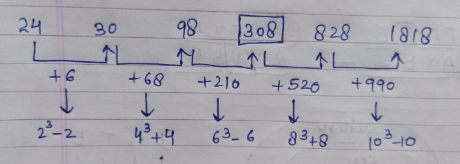 24 30 98 308 828 1818
+6 +68 +210 +520 +990
2³-2 4³+4 6³-6 8³+8 10³-10